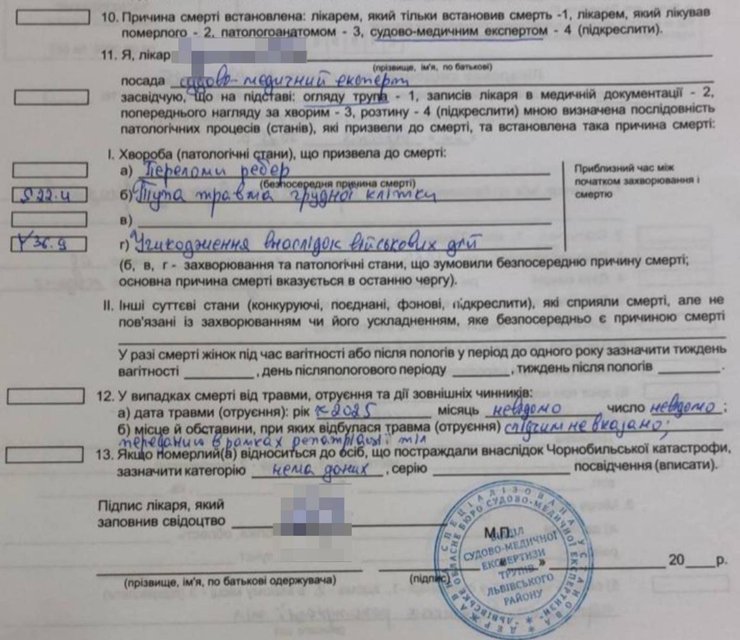 10. Причина смерті встановлена: лікарем, який тільки встановив смерть -1, лікарем, який лікував
померлого - 2, патологоанатомом - 3, судово-медичним експертом - 4 (підкреслити).
11. Я, лікар
(прізвище, ім'я, по батькові)
посада судово-медичний експерт
засвідчую, що на підставі: огляду трупа - 1, записів лікаря в медичній документації - 2,
попереднього нагляду за хворим - 3, розтину - 4 (підкреслити) мною визначена послідовність
патологічних процесів (станів), які призвели до смерті, та встановлена така причина смерті:
I. Хвороба (патологічні стани), що призвела до смерті:
а) Переломи ребер
(безпосередня причина смерті)
S 22.4 б) Тупа травма грудної клітки
в)
Y 36.9 г) Ушкодження внаслідок військових дій
Приблизний час між
початком захворювання і
смертю
(б, в, г - захворювання та патологічні стани, що зумовили безпосередню причину смерті;
основна причина смерті вказується в останню чергу).
II. Інші суттєві стани (конкуруючі, поєднані, фонові, підкреслити), які сприяли смерті, але не
пов'язані із захворюванням чи його ускладненням, яке безпосередньо є причиною смерті
У разі смерті жінок під час вагітності або після пологів у період до одного року зазначити тиждень
вагітності , день післяпологового періоду , тиждень після пологів .
12. У випадках смерті від травми, отруєння та дії зовнішніх чинників:
а) дата травми (отруєння): рік 2025 місяць невідомо число невідомо ;
б) місце й обставини, при яких відбулася травма (отруєння) слідчим не вказано;
переданий в рамках репатріації тіл
13. Якщо померлий(а) відноситься до осіб, що постраждали внаслідок Чорнобильської катастрофи,
зазначити категорію нема даних , серію посвідчення (вписати).
Підпис лікаря, який
заповнив свідоцтво
М.П.
" " 20 р.
(прізвище, ім'я, по батькові одержувача) (підпис)
СПЕЦІАЛІЗОВАНА ДЕРЖАВНА УСТАНОВА
ЛЬВІВСЬКЕ ОБЛАСНЕ БЮРО СУДОВО-МЕДИЧНОЇ ЕКСПЕРТИЗИ
ВІДДІЛ
СУДОВО-МЕДИЧНОЇ
ЕКСПЕРТИЗИ
ТРУПІВ
ЛЬВІВСЬКОГО
РАЙОНУ